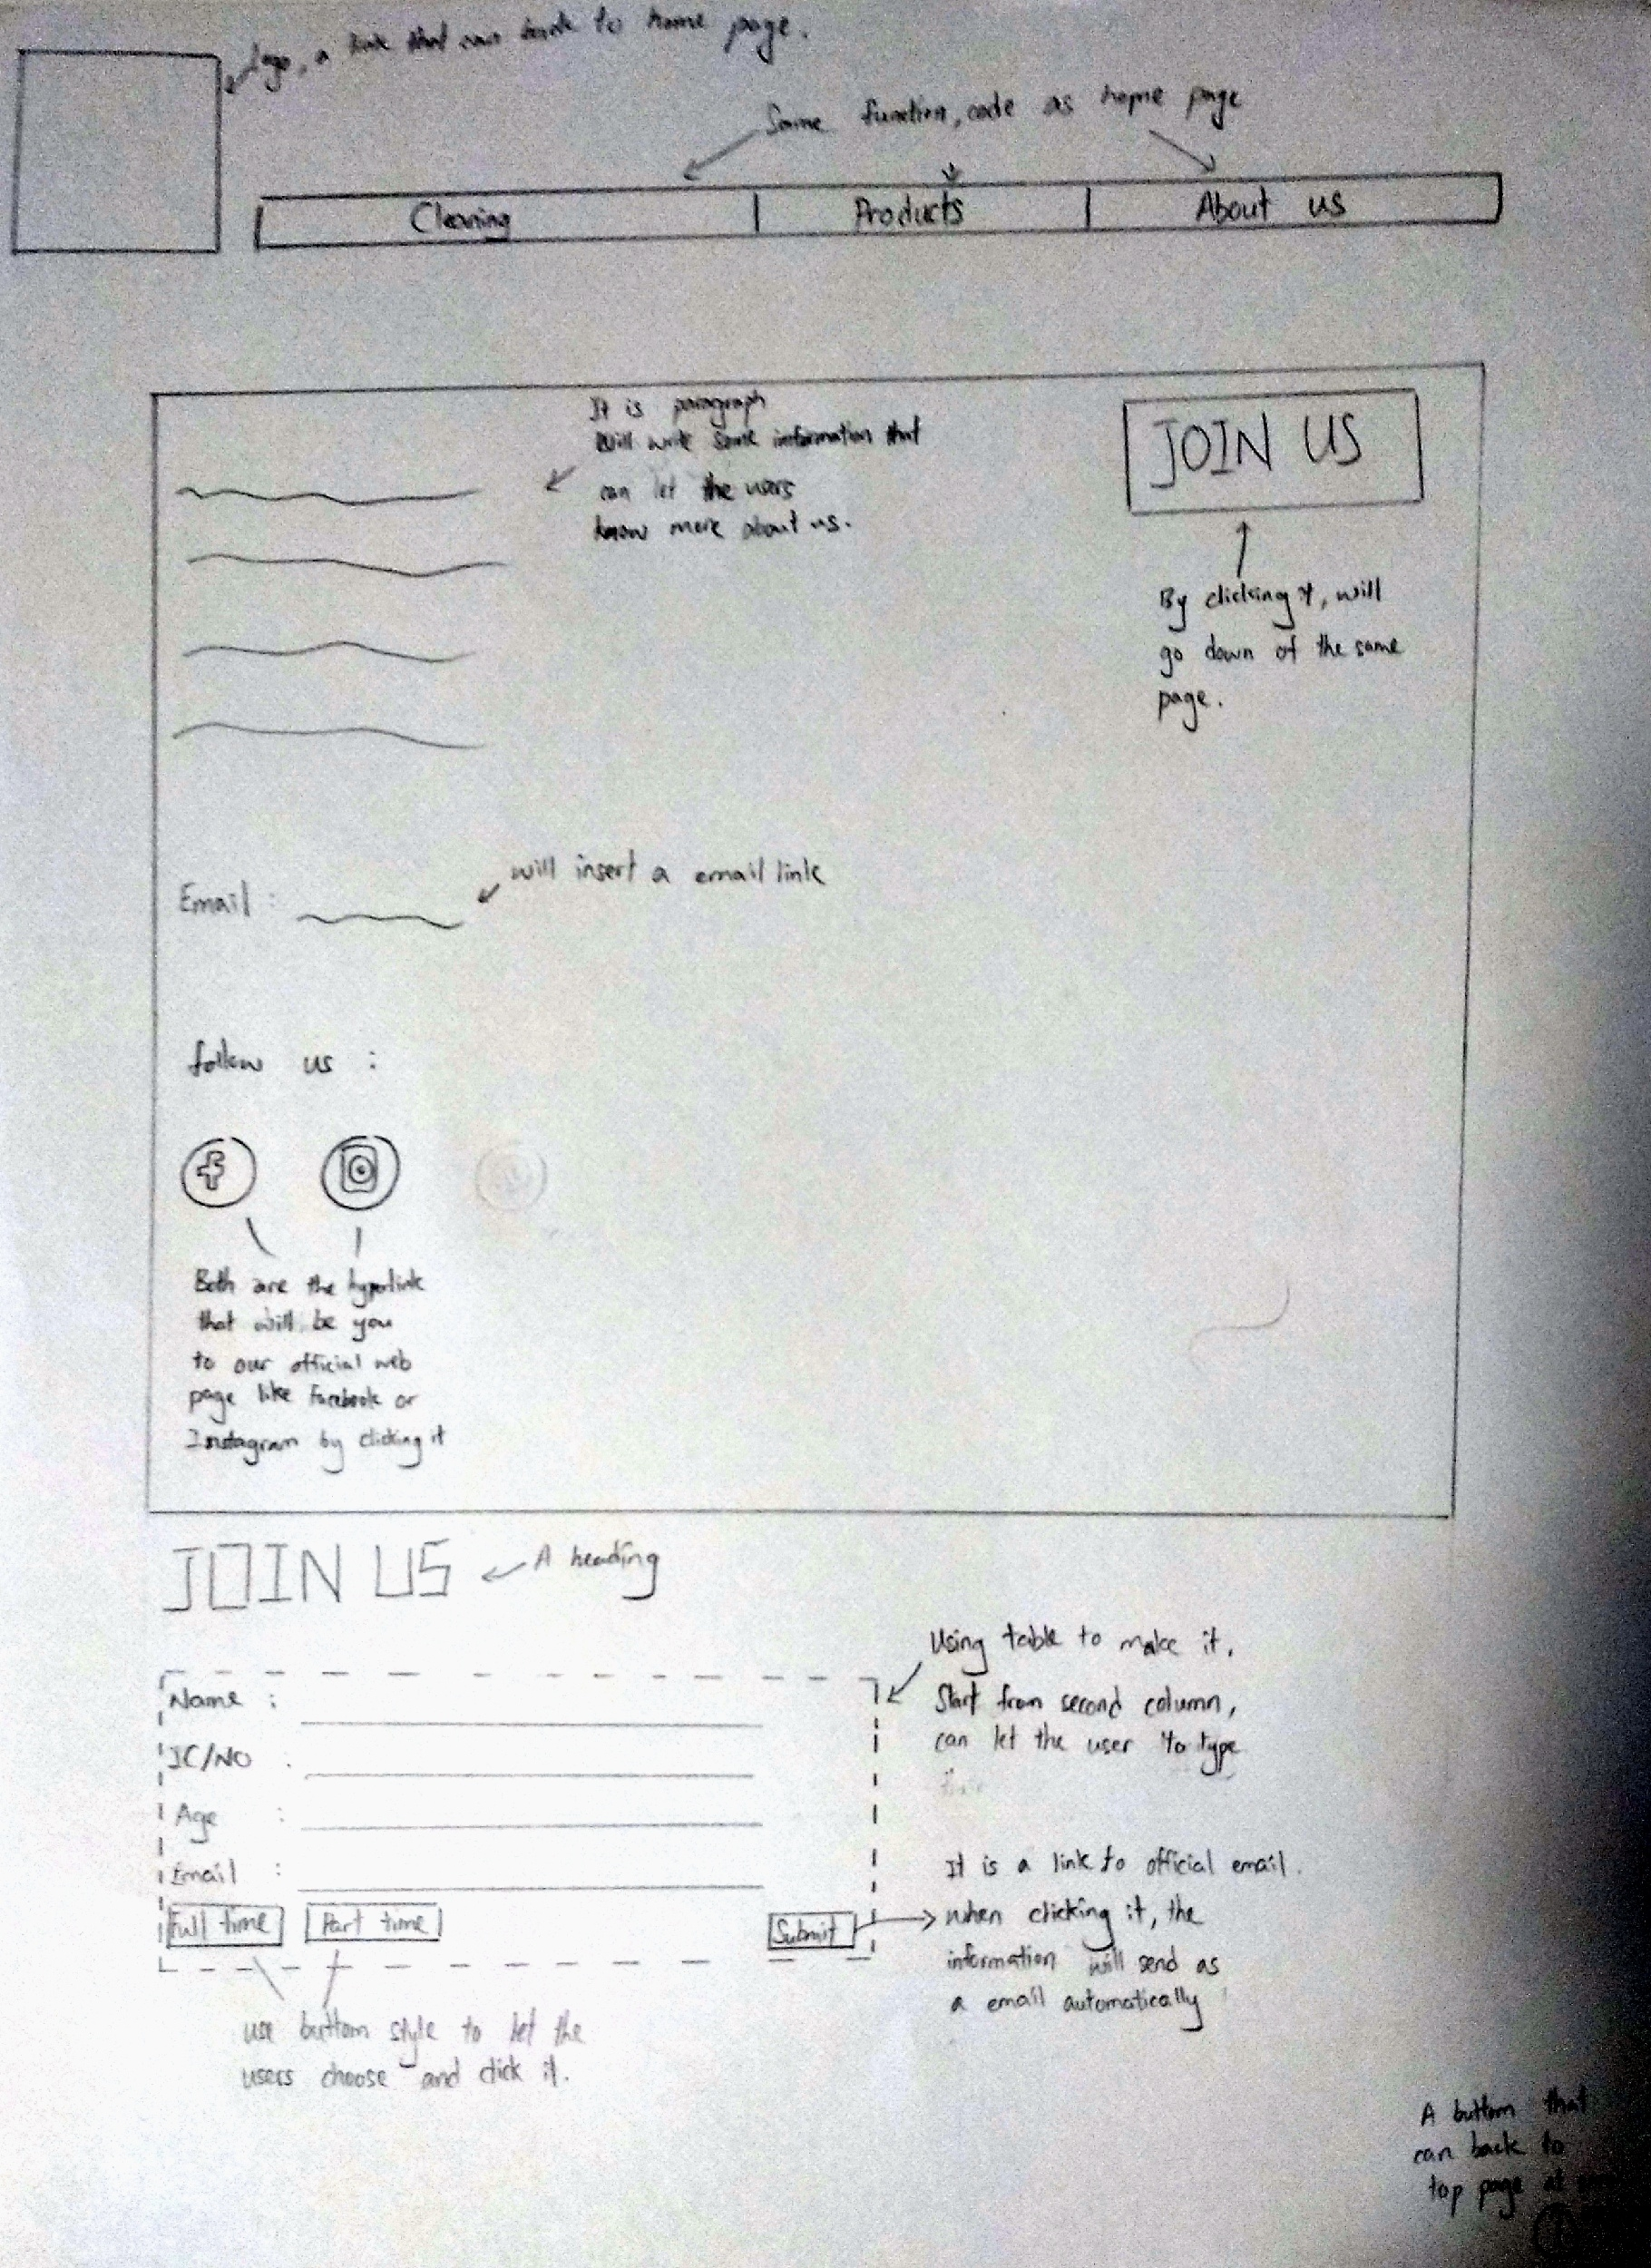 logo, a link that can back to home page.
Same function, code as home page
Cleaning
Products
About us
It is paragraph
Will write some information that
can let the users
know more about us.
JOIN US
By clicking it, will
go down of the same
page.
Email :
will insert a email link
follow us :
f
Both are the hyperlink
that will be you
to our official web
page like Facebook or
Instagram by clicking it
JOIN US
A heading
Using table to make it.
Start from second column,
can let the user to type
Name :
IC/NO :
Age :
Email :
Full time
Part time
Submit
It is a link to official email.
when clicking it, the
information will send as
a email automatically
use buttom style to let the
users choose and click it.
A buttom that
can back to
top page at